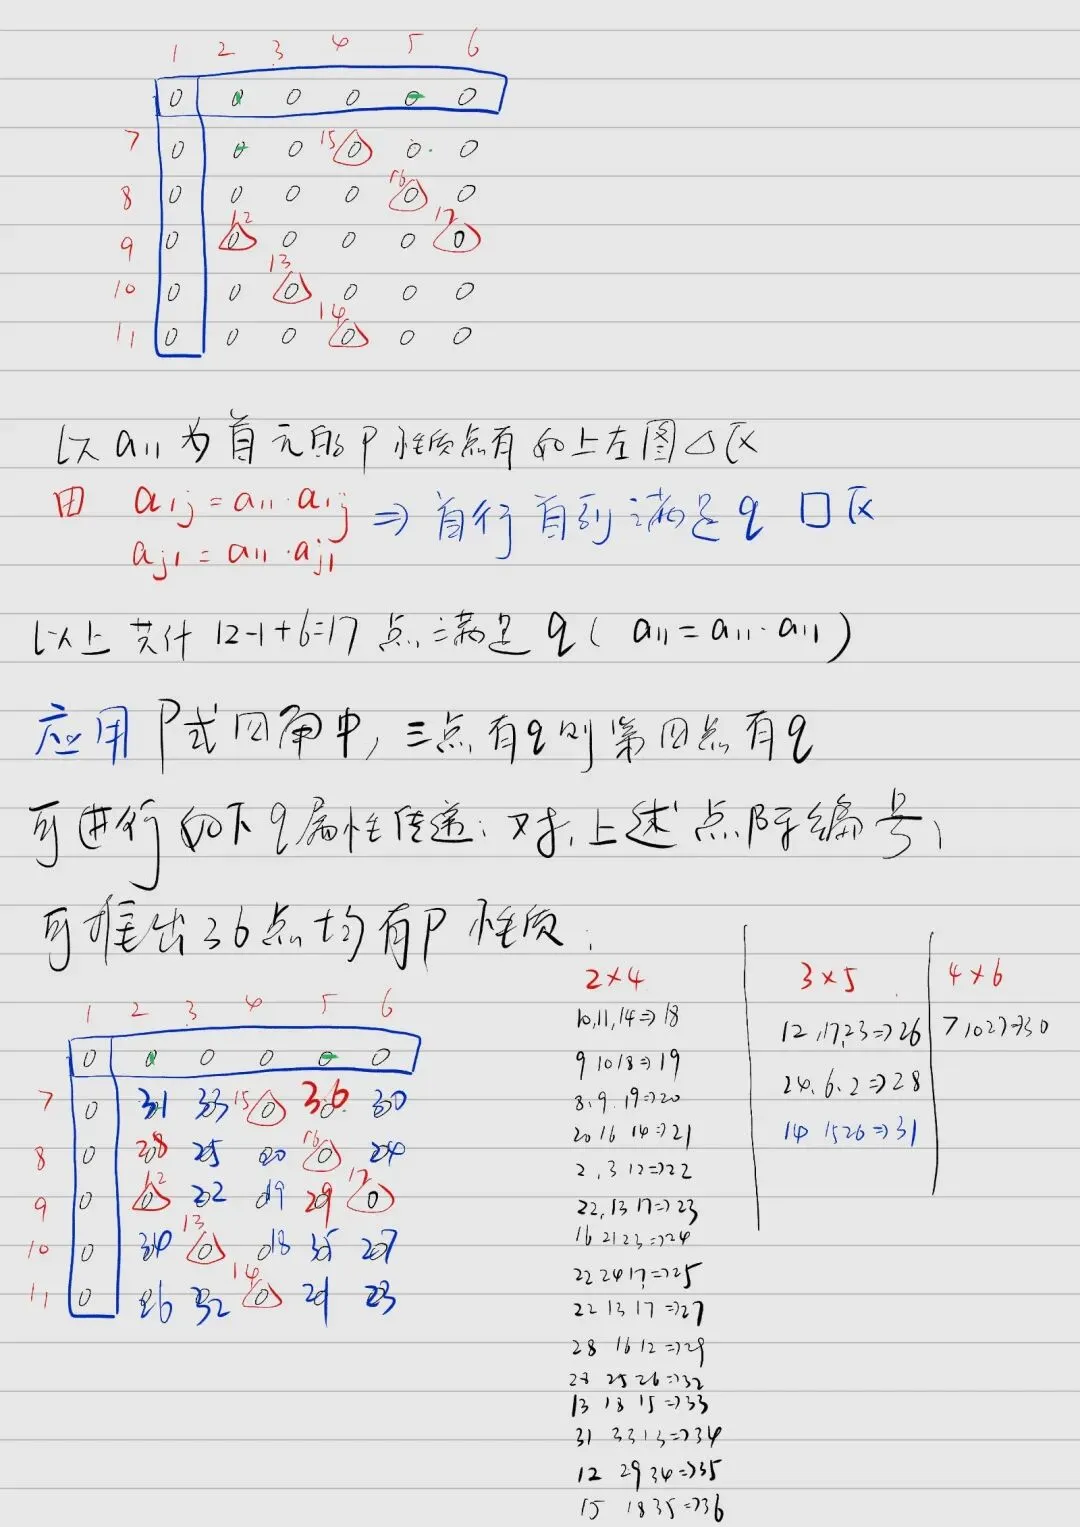 1 2 3 4 5 6
0 0 0 0 0 0
7 0 0 0 15 0 0 0
8 0 0 0 0 16 0 0
9 0 12 0 0 0 0 17 0
10 0 0 13 0 0 0 0
11 0 0 0 14 0 0 0
以 a11 为首元的 P 性质点有如上左图△区
由 a1j = a11·a1j ⇒ 首行首列满足 q 口区
aj1 = a11·aj1
以上共计 12-1+6=17 点满足 q ( a11 = a11·a11 )
应用 P式四角中, 三点有q则第四点有q
可进行如下q属性传递: 对上述点阵编号,
可推出36点均有P性质.
1 2 3 4 5 6
0 0 0 0 0 0
7 0 31 33 15 0 36 30
8 0 28 25 20 16 0 24
9 0 12 0 22 19 29 17 0
10 0 34 13 0 18 35 27
11 0 26 32 14 0 21 23
2×4
10,11,14⇒18
9 10 18⇒19
8.9.19⇒20
20 16 14⇒21
2,3 12⇒22
22,13 17⇒23
16 21 23⇒24
22 24 17⇒25
22 13 17⇒27
28 16 12⇒29
28 25 26⇒32
13 18 15⇒33
31 33 13⇒34
12 29 34⇒35
15 18 35⇒36
3×5
12,17,23⇒26
24.6.2⇒28
14 15 26⇒31
4×6
7,10 27⇒30